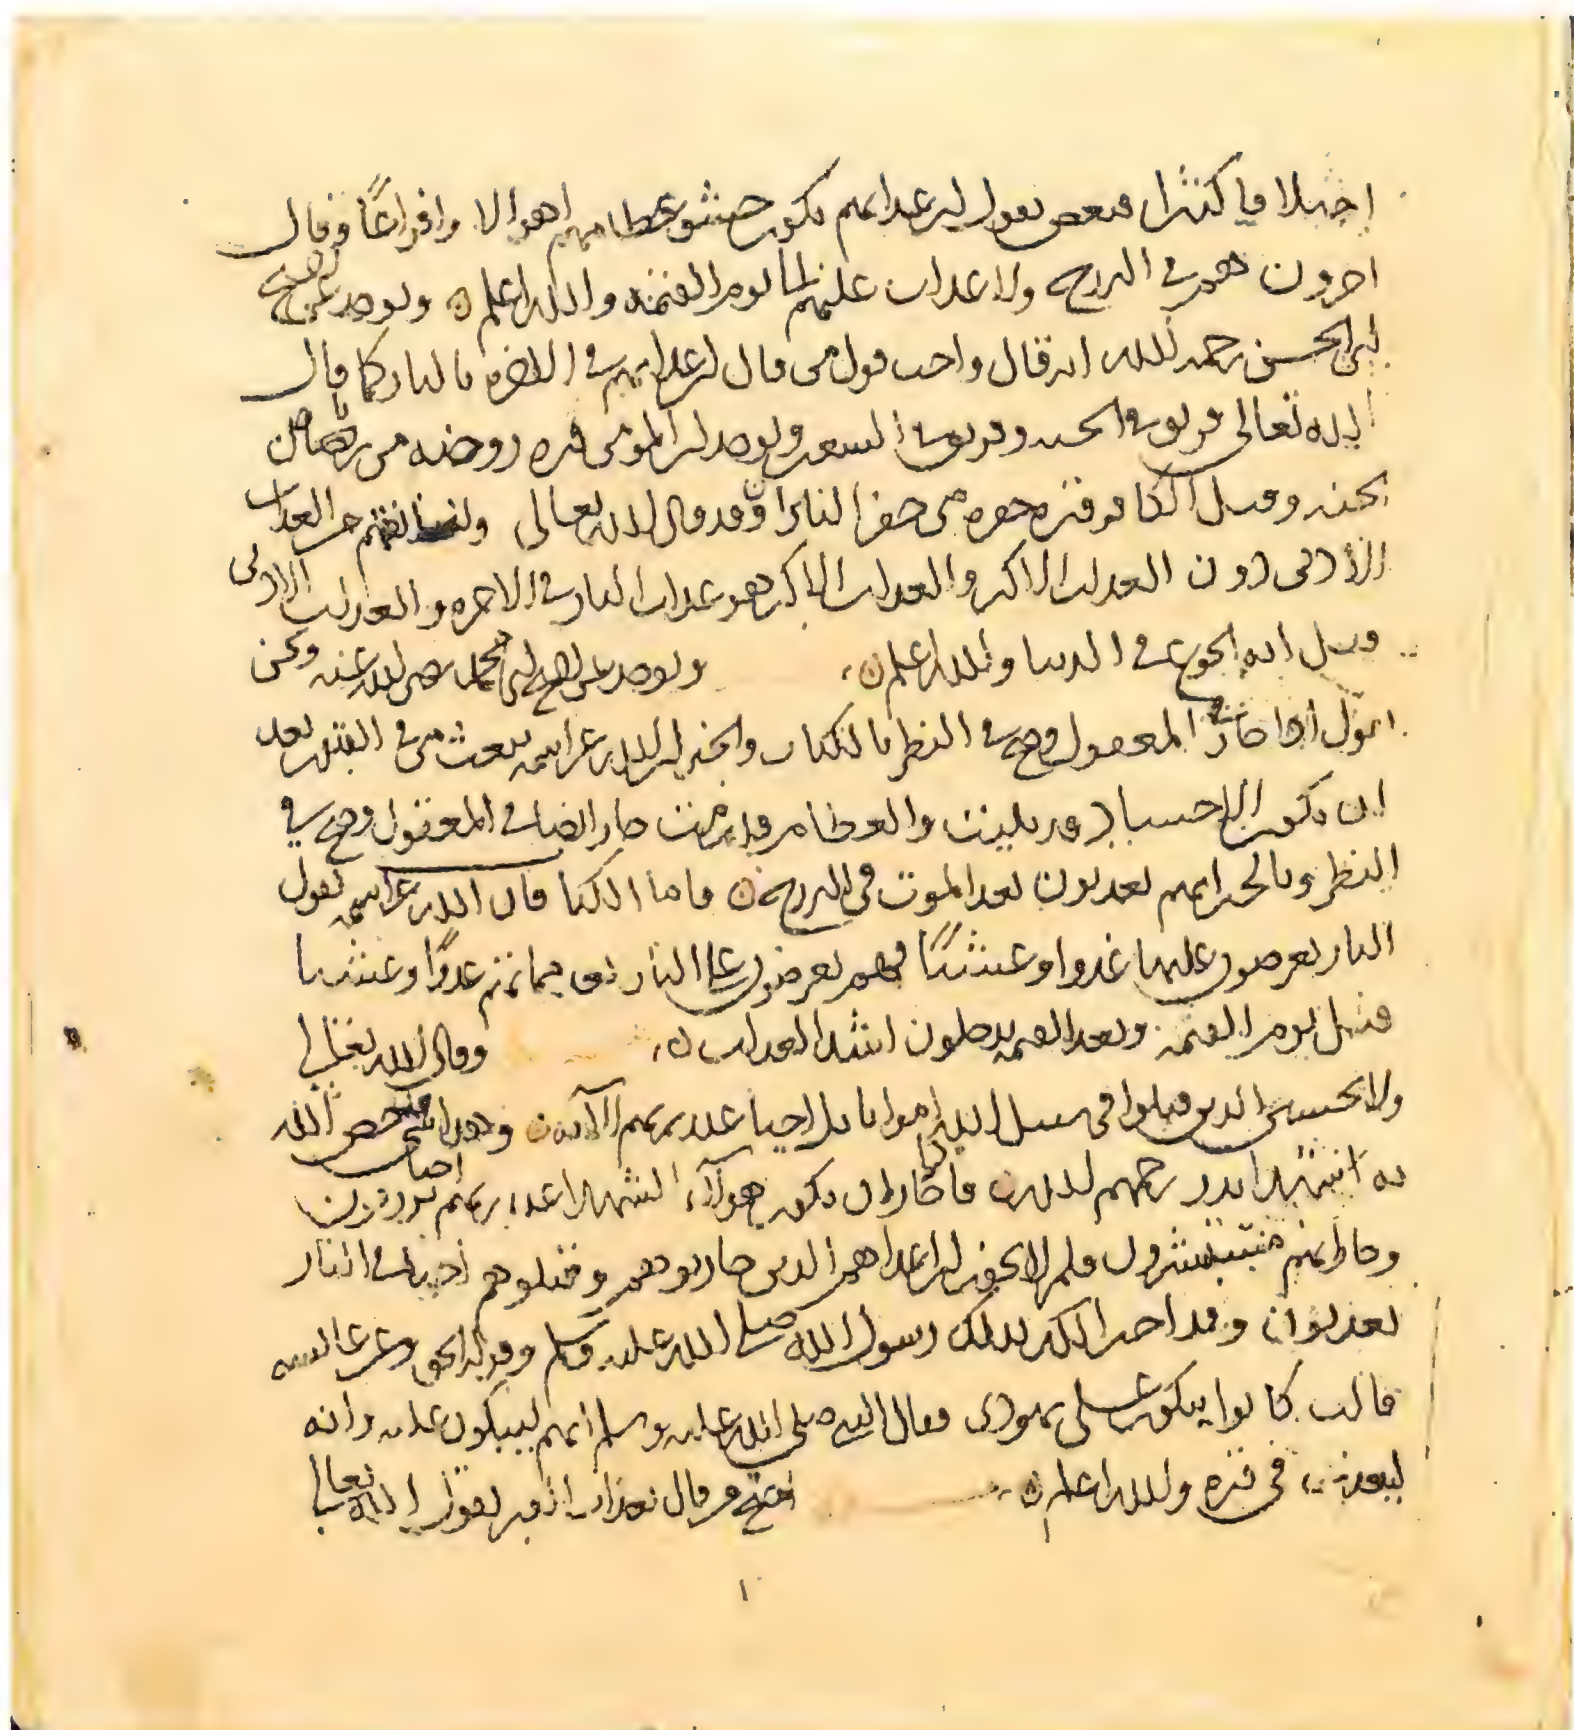 اختلافا كثيرا فبعض يقول ان عذابهم يكون حشو عظامهم اهوالا وافزاعا وقال
اخرون هم في البرزخ ولا عذاب عليهم الى يوم القيمة والله اعلم ويوجد عن
ابي الحسن رحمه الله انه قال واحب قول من قال ان عذابهم في الاخرة بالنار كما قال
الله تعالى فريق في الجنة وفريق في السعير ويوجد ان المومن قبره روضة من رياض
الجنة وقيل الكافر قبره حفرة من حفر النار وقد قال الله تعالى ولنذيقنهم من العذاب
الأدنى دون العذاب الاكبر والعذاب الاكبر هو عذاب النار في الاخرة والعذاب الادنى
وقيل انه الجوع في الدنيا والله اعلم ويوجد عن ابي محمد رضي الله عنه ونحن
نقول اذا جاز في المعقول وصح في النظر بالكتاب والخبر ان الله عز اسمه يبعث من في القبور بعد
ان تكون الاجساد قد بليت والعظام قد رمت جاز ايضا في المعقول وصح في
النظر وبالخبر انهم يعذبون بعد الموت في البرزخ فاما الكتاب فان الله عز اسمه يقول
النار يعرضون عليها غدوا وعشيا فهم يعرضون على النار بعد مماتهم غدوا وعشيا
قبل يوم القيمة وبعد القيمة يدخلون اشد العذاب وقال الله تعالى
ولا تحسبن الذين قتلوا في سبيل الله امواتا بل احيا عند ربهم الآية وهذا شي خص الله
به شهدا بدر رحمهم الله فاذا جاز ان يكون هولآء الشهدا عند ربهم احيا يرزقون
وجاز انهم مستبشرون فلم لا يجوز ان اعداهم الذين حاربوهم وقتلوهم احيا في النار
يعذبون وقد اخبر بذلك رسول الله صلى الله عليه وسلم وقوله الحق وعن عائشة
قالت كانوا يبكون على يهودى فقال النبي صلى الله عليه وسلم انهم ليبكون عليه وانه
ليعذب في قبره والله اعلم احتج من قال بعذاب القبر بقول الله تعالى